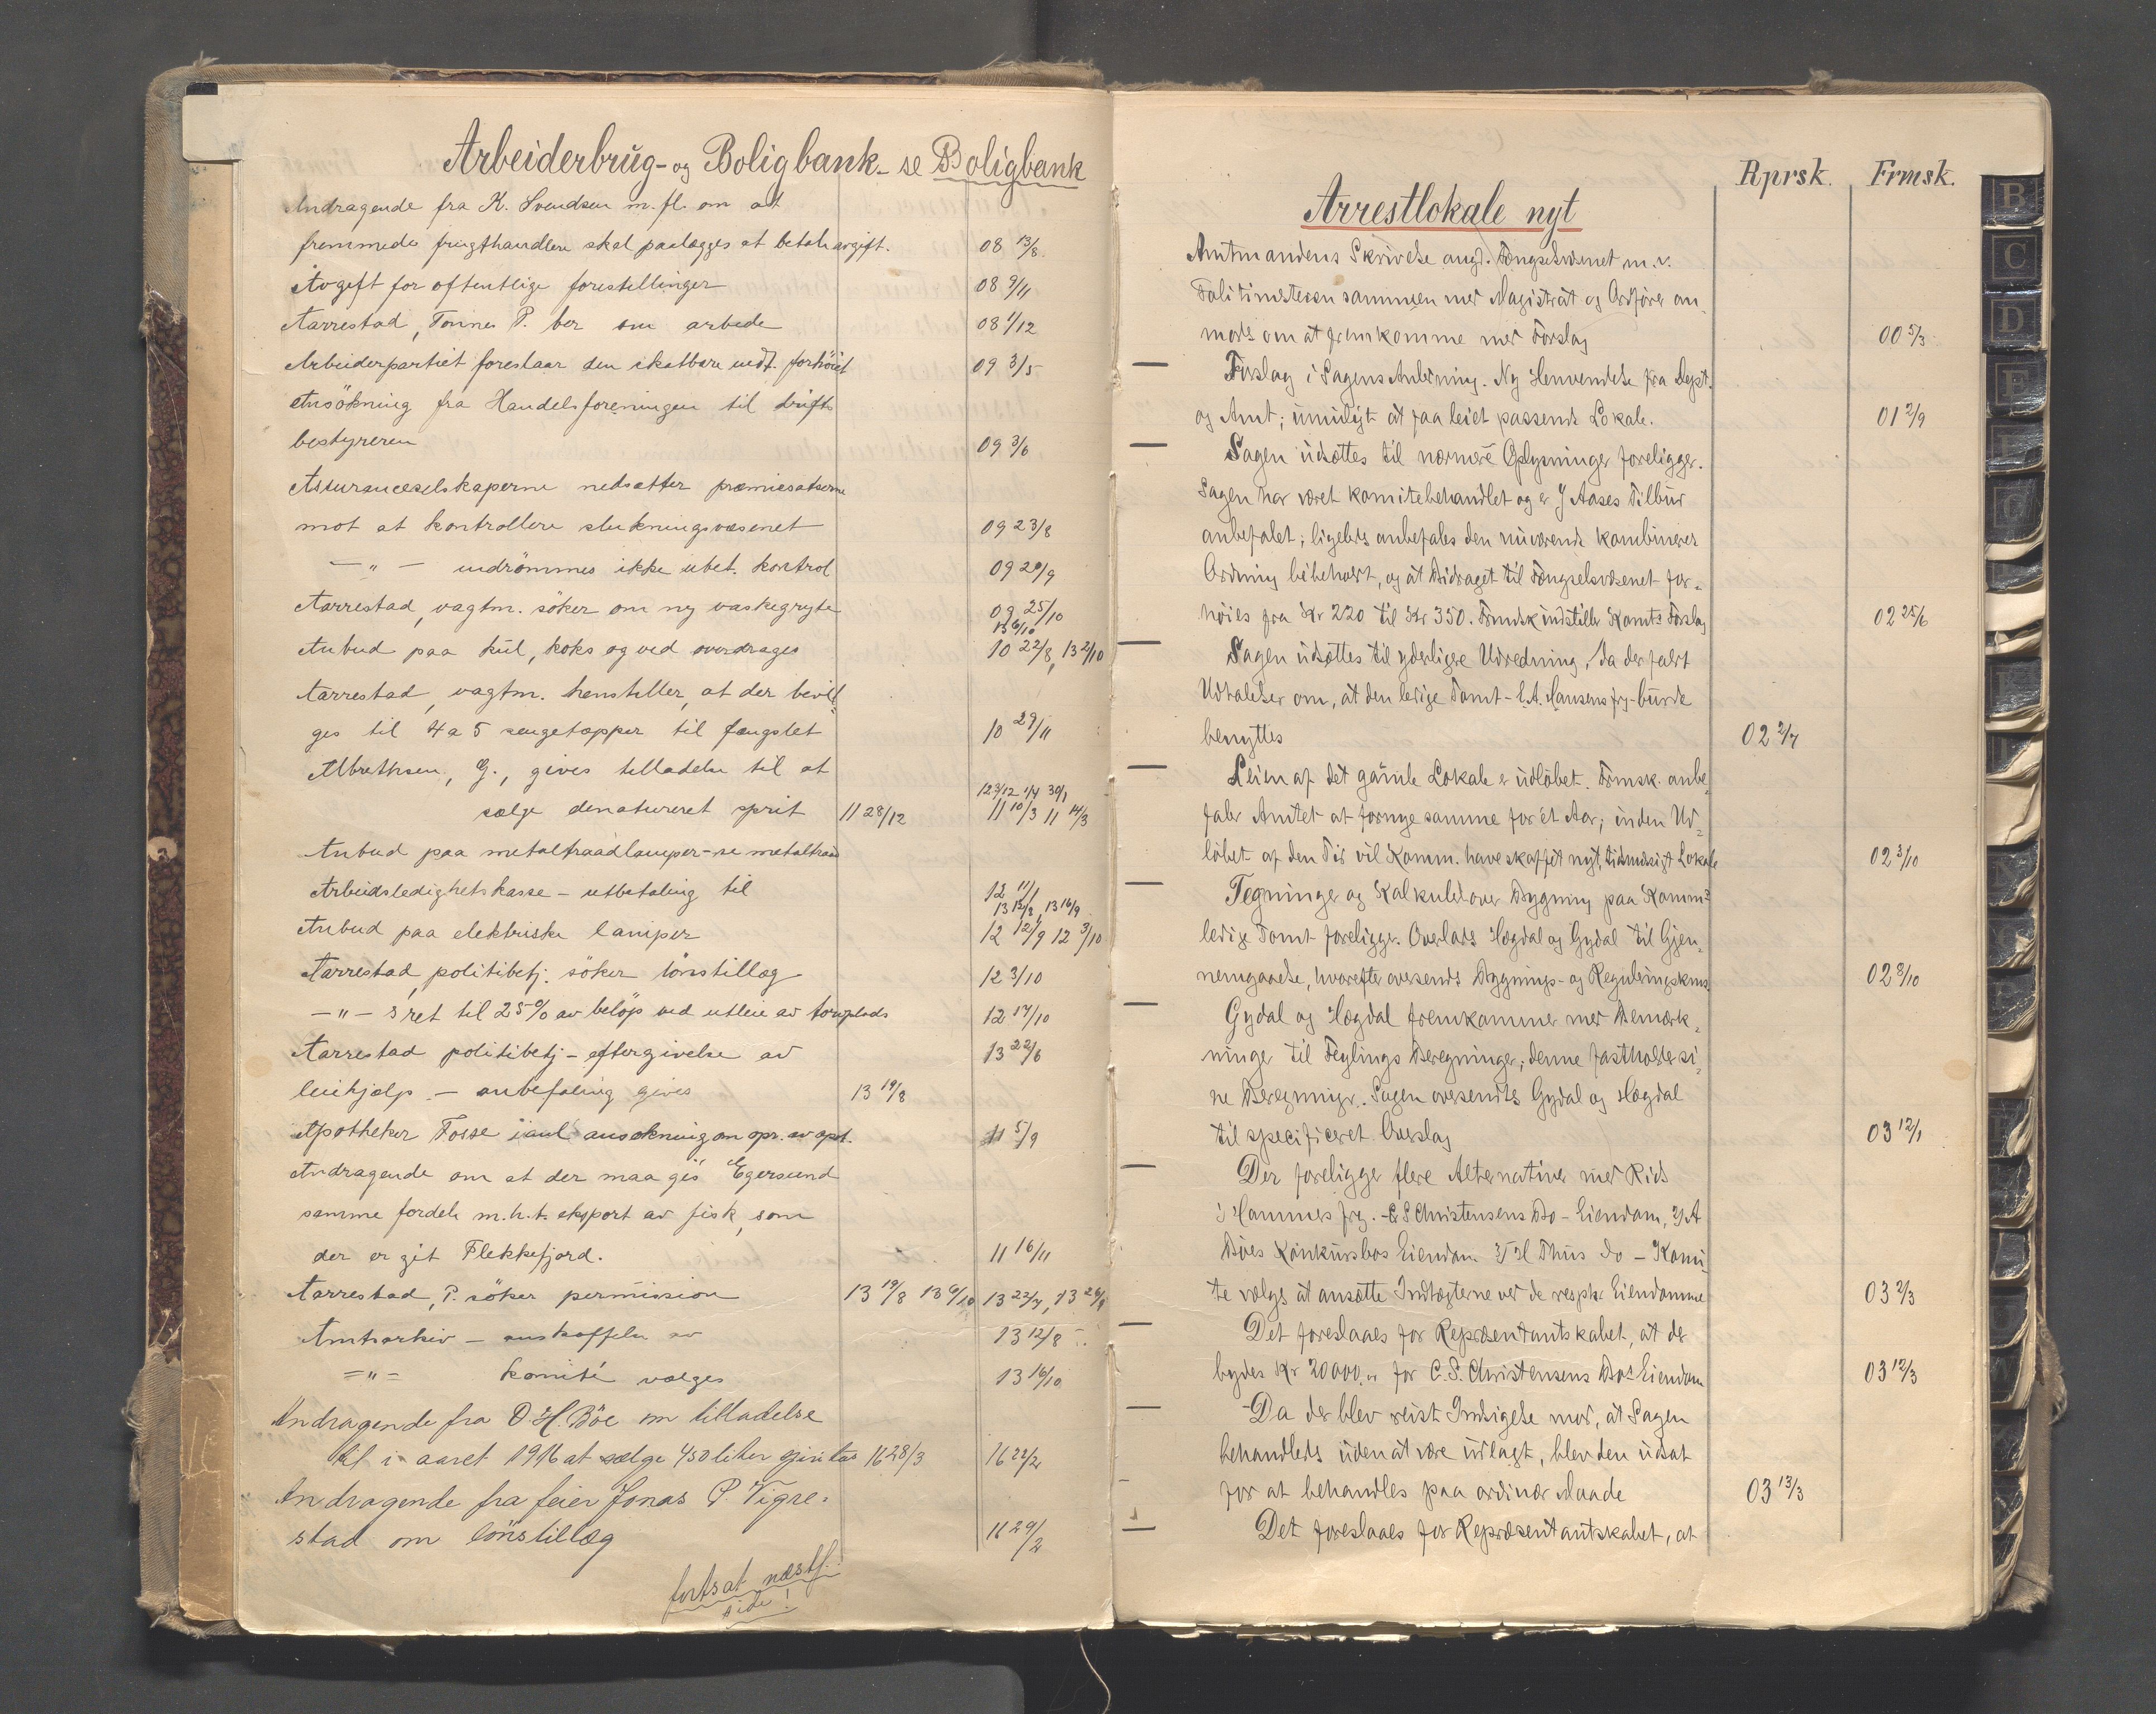 Arbeiderbrug- og Boligbank - se Boligbank
Andragende fra K. Svendsen m. fl. om at
fremmede frugthandlere skal paalægges at betale avgift. 08 13/8
Avgift for offentlige forestillinger 08 9/11
Aarrestad, Tønnes P. ber om arbeide 08 1/12
Arbeiderpartiet foreslaar den skatbare indt. forhöiet 09 3/5
Ansökning fra Handelsforeningen til drifts
bestyreren 09 3/6
Assuranceselskaperne nedsætter præmiesatserne
mot at kontrollere slukningsvæsenet 09 23/8
— " — indrömmes ikke ubet. kontrol 09 20/9
Aarrestad, vagtm. söker om ny vaskegryte 09 25/10
13 6/10
Anbud paa kul, koks og ved overdrages 10 22/8, 13 2/10
Aarrestad, vagtm. henstiller, at der bevil
ges til 4 a 5 sengetæpper til fængslet 10 29/11
Albrethsen, G., gives tilladelse til at
12 3/12 1/4 30/1
sælge denatureret sprit 11 28/12 11 10/3 11 14/3
Anbud paa metaltraadlamper - se metaltraad
Arbeidsledighetskasse - utbetaling til 12 11/1
13 12/2, 13 16/9
Anbud paa elektriske lamper 12 12/9 12 3/10
Aarrestad, politibetj. söker lönstillæg 12 3/10
— " — s ret til 25% av belöp ved utleie av torvplads 12 17/10
Aarrestad politibetj - eftergivelse av 13 22/6
leiehjælp. - anbefaling gives 13 19/8
Apotheker Fosse i anl. ansökning om opr. av apt. 11 5/9
Andragende om at der maa gis Egersund
samme fordele m.h.t. eksport av fisk, som
der er git Flekkefjord. 11 16/11
Aarrestad, P. söker permission 13 19/8 13 6/10 13 22/7, 13 26/8
Amtsarkiv - anskaffelse av 13 12/8
= " = komité vælges 13 16/10
Andragende fra O. H. Böe om tilladelse
til i aaret 1916 at sælge 450 liter spiritus 16 28/3 16 22/2
Andragende fra feier Jonas P. Vigre=
stad om lönstillæg 16 29/2
fortsat næste
side!
Rprsk. Frmsk.
Arrestlokale nyt
Amtmandens Skrivelse angd. Fængselsvæsenet m.v.
Politimesteren sammen med Magistrat og Ordfører an
modes om at fremkomme med Forslag 00 5/3
— Forslag i Sagens Anledning. Ny Henvendelse fra Dept.
og Amt; umuligt at faa leiet passende Lokale. 01 2/9
— Sagen udsættes til nærmere Oplysninger foreligger.
Sagen har været komitebehandlet og er J Aases Tilbud
anbefalet; ligeledes anbefales den nuværende kombinerede
Ordning bibeholdt, og at Bidraget til Fængselsvæsenet for-
höies fra Kr 220 til Kr 350. Frmsk indstiller Komts Forslag 02 25/6
— Sagen udsættes til yderligere Udredning, da der faldt
Udtalelser om, at den ledige Tomt - C.A. Hansens frg - burde
benyttes 02 2/7
— Leien af det gamle Lokale er udlöbet. Frmsk. anbe-
faler Amtet at fornye samme for ét Aar; inden Ud-
löbet af den Tid vil Komm. have skaffet nyt, tidmæssigt Lokale 02 3/10
— Tegninger og Kalkule over Bygning paa Komms
ledige Tomt foreligger. Overlades Hægdal og Gydal til Gjen-
nemgaaelse, hvorefter oversendes Bygnings- og Reguleringskms. 02 8/10
— Gydal og Hægdal fremkommer med Bemærk-
ninger til Feylings Beregninger; denne fastholder si-
ne Beregninger. Sagen oversendtes Gydal og Hægdal
til specificeret Overslag 03 12/1
— Der foreligger flere Alternativer med Rids
i Hammes frg. - C S Christensens Bo - Eiendom, 2) A
Böes Konkursbos Eiendom 3) H Thüs do - Komi-
te vælges at ansætte Indtægterne ved de respkt Eiendomme 03 2/3
— Det foreslaaes for Repræsentantskabet, at der
bydes Kr 20000,00 for C. S. Christensens Bos Eiendom 03 12/3
— Da der blev reist Indsigelse mod, at Sagen
behandledes uden at være udlagt, blev den udsat
for at behandles paa ordinær Maade 03 13/3
— Det foreslaaes for Repræsentantskabet, at
B
C
D
E
F
G